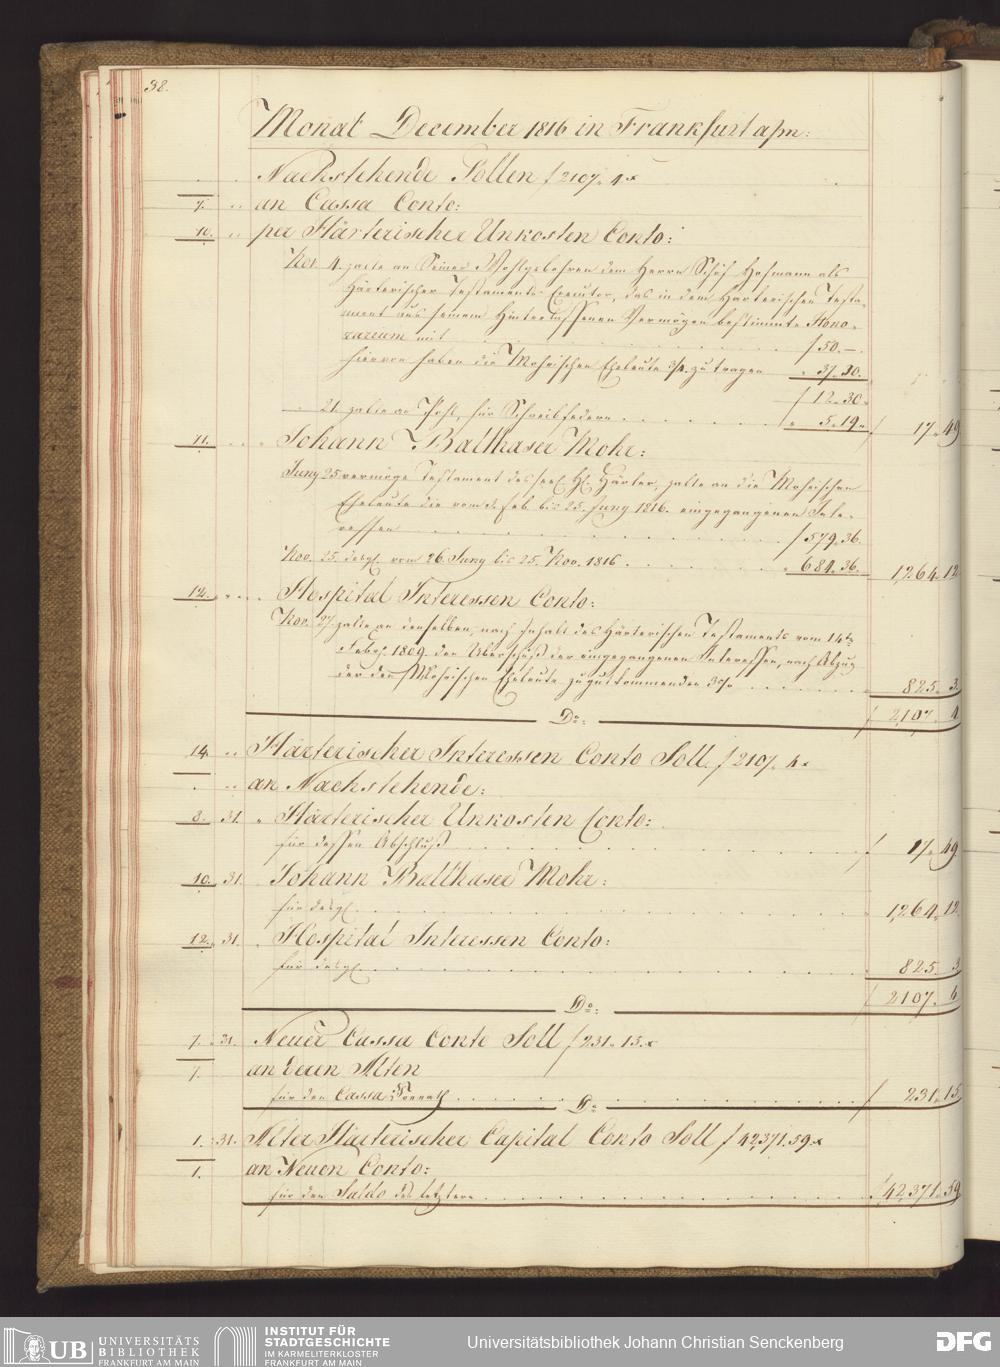 38.
Monat December 1816 in Frankfurt a/m:
Nachstehende Sollen f 2107. 4 x
7. an Cassa Conto:
10. per Härterischer Unkosten Conto:
Nov. 4. zalte an Seiner Wohlgebohren dem Herrn Schöf Hofmann als
Härterischer Testaments Executor, das in dem Harterischen Testa-
ment aus seinem Hinterlassenen Vermögen bestimmte Hono-
rarium mit f 50.—.
hiervon haben die Mohrischen Eheleute 3/4 zu tragen " 37. 30.
f 12. 30.
" 21. zalte an Pohl, für Schreibfedern " 5. 19. f 17. 49
11. Johann Balthaser Mohr:
Juny 25 vermöge Testament des seel. H. Härter, zalte an die Mohrischen
Eheleute die vom Feb. bis 25. Juny 1816. eingegangenen Inte-
ressen f 579. 36.
Nov. 25. desgl. vom 26. Juny bis 25. Nov. 1816 " 684. 36. 1,264. 12
12. Hospital Interessen Conto:
Nov. 27. zalte an denselben, nach Inhalt des Härterischen Testaments vom 14ten
Febr. 1809. den Überschuß der eingegangenen Interessen, nach Abzug
der den Mohrischen Eheleute zugutkommenden 825. 3.
f 2,107. 4
Do:
14. Härterischer Interessen Conto Soll f 2107. 4 x
an Nachstehende:
8. 31. " Härterischer Unkosten Conto:
für dessen Abschluß f 17. 49
10. 31. Johann Balthaser Mohr:
für desgl. 1,264. 12.
12. 31. Hospital Interessen Conto:
für desgl. 825. 3
f 2107. 6
Do:
7. 31. Neuer Cassa Conto Soll f 231. 15. x
7. an deren Alten
für den Cassa Vorrath f 231. 15
Do
1. 31. Alter Härterischer Capital Conto Soll f 42,371. 59. x
1. an Neuen Conto:
für den Saldo des letztern f 42,371. 59
UB UNIVERSITÄTS
BIBLIOTHEK
FRANKFURT AM MAIN
INSTITUT FÜR
STADTGESCHICHTE
IM KARMELITERKLOSTER
FRANKFURT AM MAIN
Universitätsbibliothek Johann Christian Senckenberg
DFG